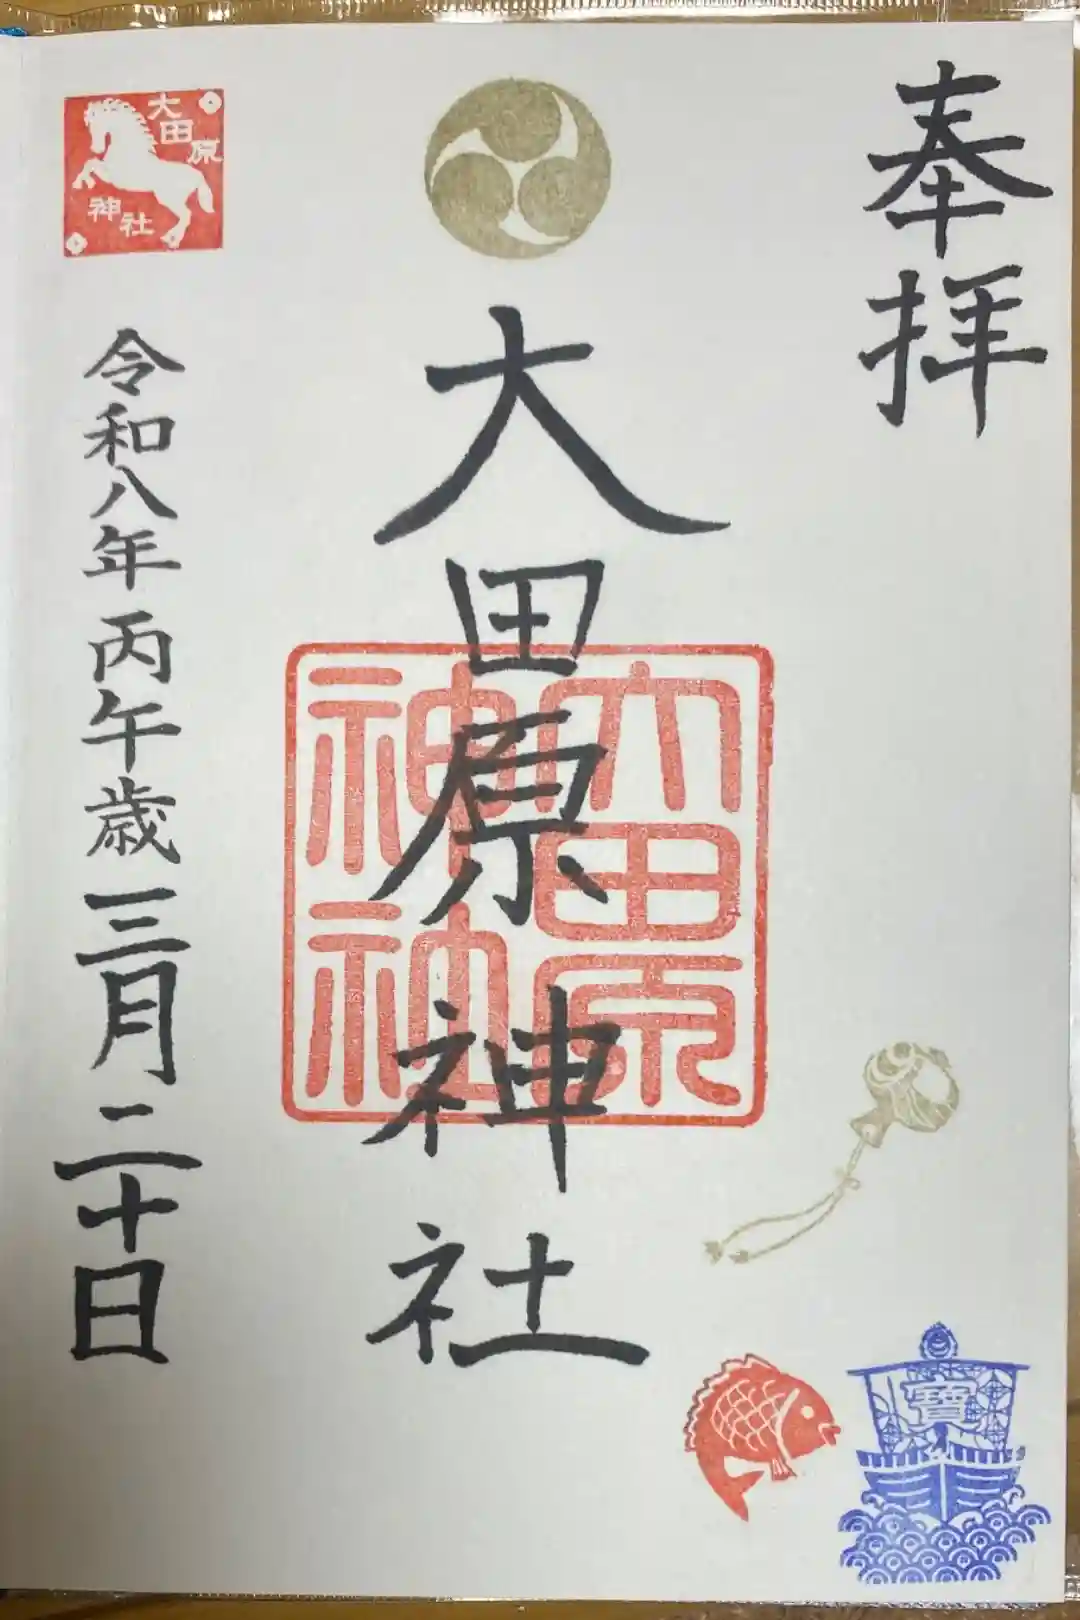 奉拝
大田原神社
大田原
神社
大田原
神社
令和八年丙午歳三月二十日
寶